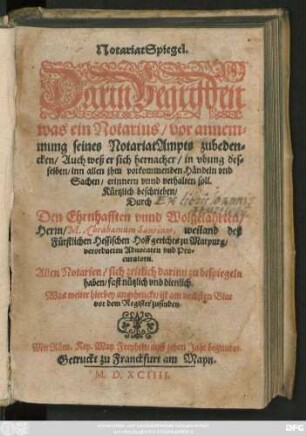 NotariatSpiegel.
Darin Begriffen
was ein Notarius / vor annem-
mung seines NotariatAmpts zubeden-
cken / Auch weß er sich hernacher / in vbung des-
selben / inn allen jhm vorkommenden Händeln vnd
Sachen / erinnern vnnd verhalten soll.
Kürtzlich beschrieben /
Durch
Den Ehrnhafften vnnd Wolgelahrten
Herrn / M. Abrahamum Saurium, weiland deß
Fürstlichen Hessischen Hoffgerichts zu Marpurg /
verordneten Aduocaten vnd Pro-
curatorn.
Allen Notarien / sich zeitlich darinn zu bespiegeln
haben / fast nützlich vnd dienlich.
Was weiter hierbey angehenckt / ist am nechsten Blat
vor dem Register zufinden.
Mit Röm. Key. May. Freyheit / auff zehen Jahr begnadet.
Getruckt zu Franckfurt am Mayn.
M. D. XCIIII.